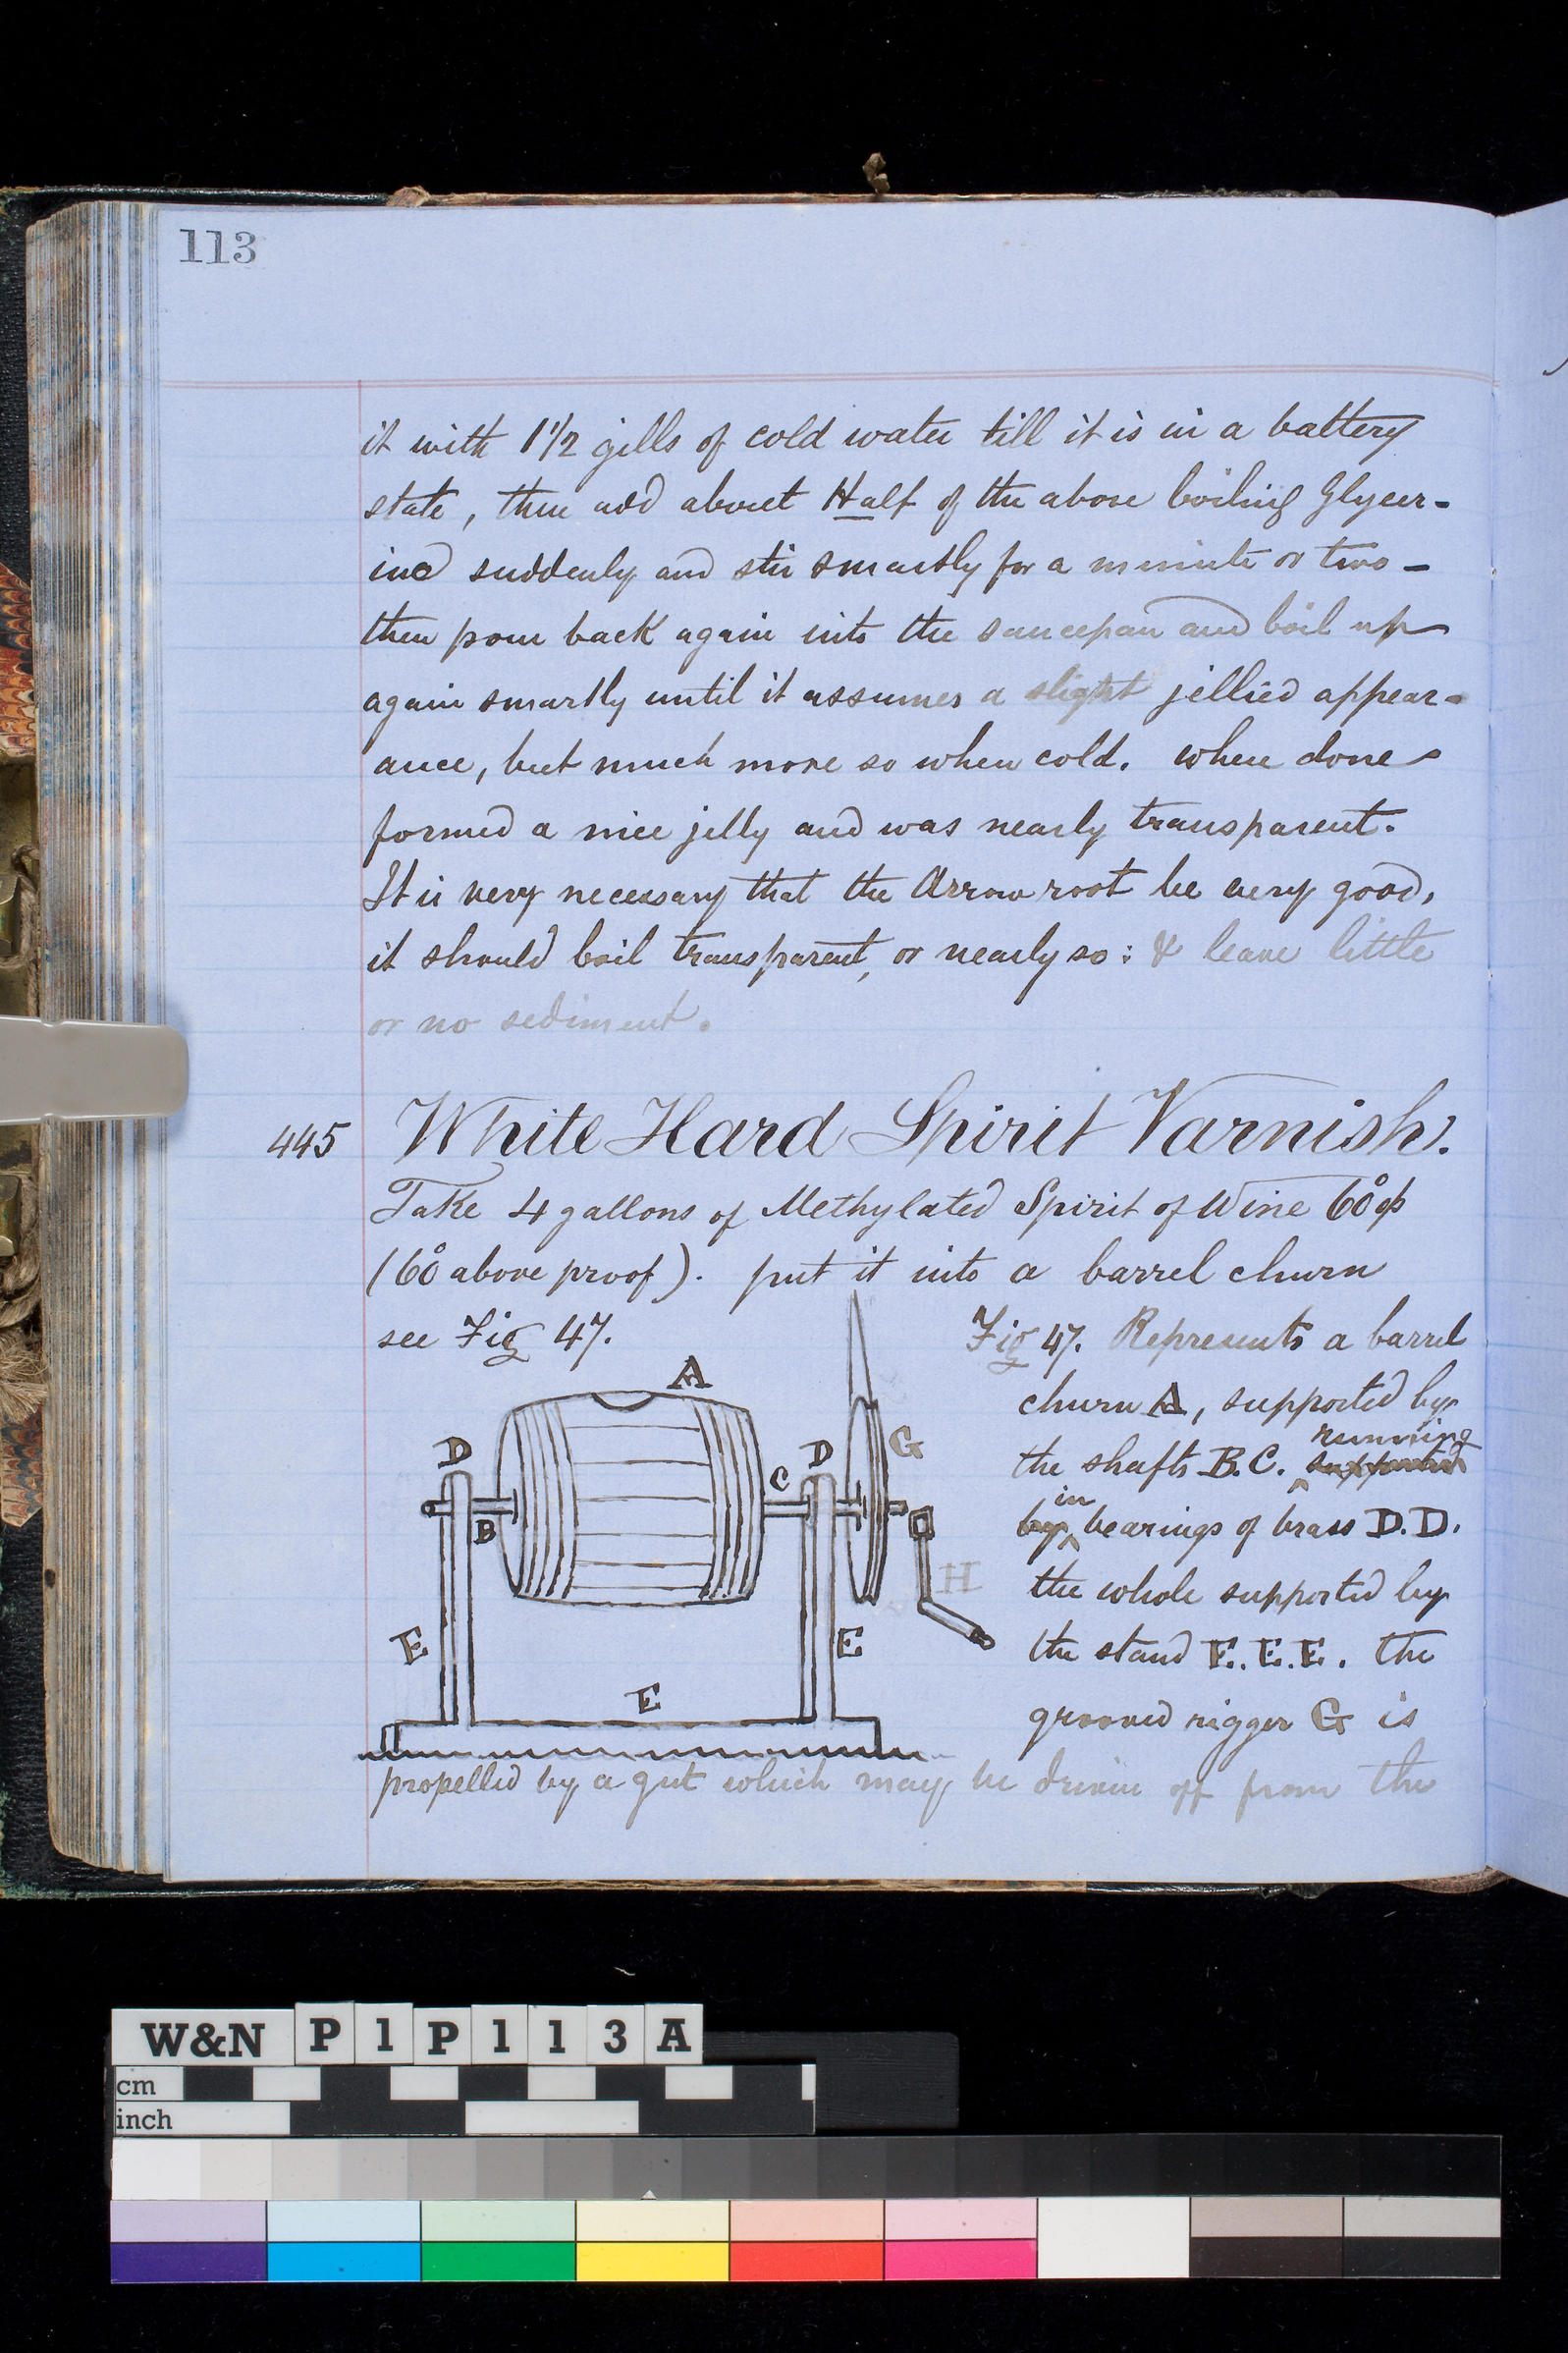 113
it with 1 1/2 gills of cold water till it is in a battery
state, then add about Half of the above boiling Glycer-
ine suddenly and stir smartly for a minute or two -
then pour back again into the saucepan and boil up
again smartly until it assumes a slight jellied appear-
ance, but much more so when cold. when done
formed a nice jelly and was nearly transparent.
It is very necessary that the Arrow root be very good,
it should boil transparent, or nearly so: & leave little
or no sediment.
445 White Hard Spirit Varnish.
Take 4 gallons of Methylated Spirit of Wine 60° op
(60° above proof). put it into a barrel churn
see Fig 47.
Fig 47. Represents a barrel
churn A, supported by
the shafts B.C. supported running
by in bearings of brass D.D.
the whole supported by
the stand E.E.E. the
grooved rigger G is
A
D
B
C
D
G
H
E
E
E
propelled by a gut which may be driven off from the
W&N P1P113A
cm
inch